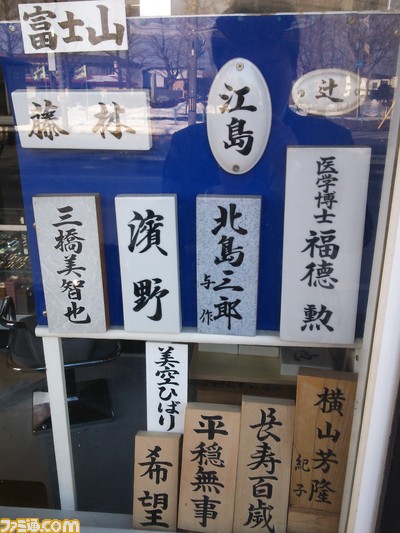 富士山
藤林
江島
辻
三橋美智也
濱野
北島三郎
与作
医学博士
福德勲
美空ひばり
希望
平穏無事
長寿百歳
横山芳隆
紀子
ファミ通.com